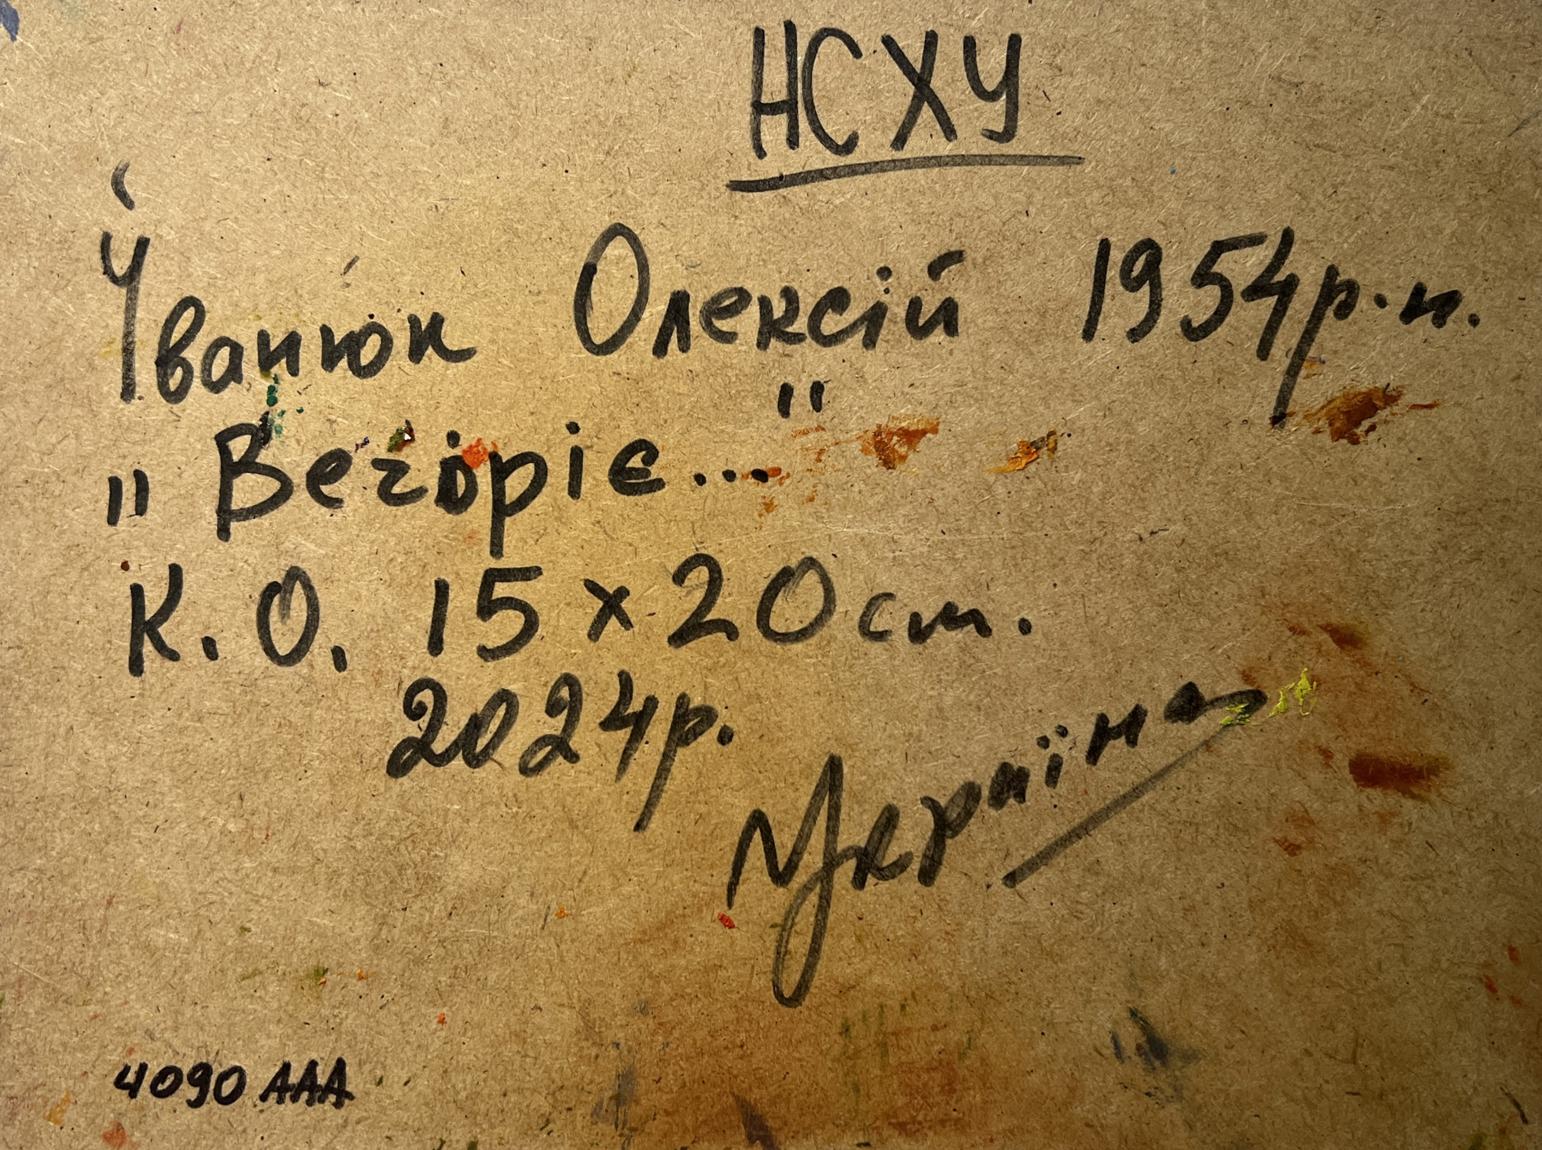 НСХУ
Іванюк Олексій 1954 р.н.
"Вечоріє..."
К.О. 15 x 20 см.
2024р.
Україна
4090 AAA